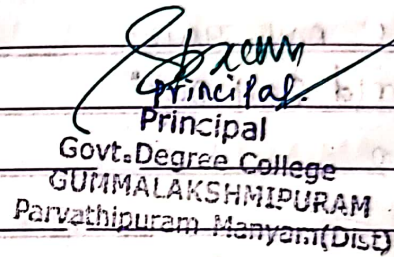 Principal.
Principal
Govt.Degree College
GUMMALAKSHMIPURAM
Parvathipuram Manyam(Dist)